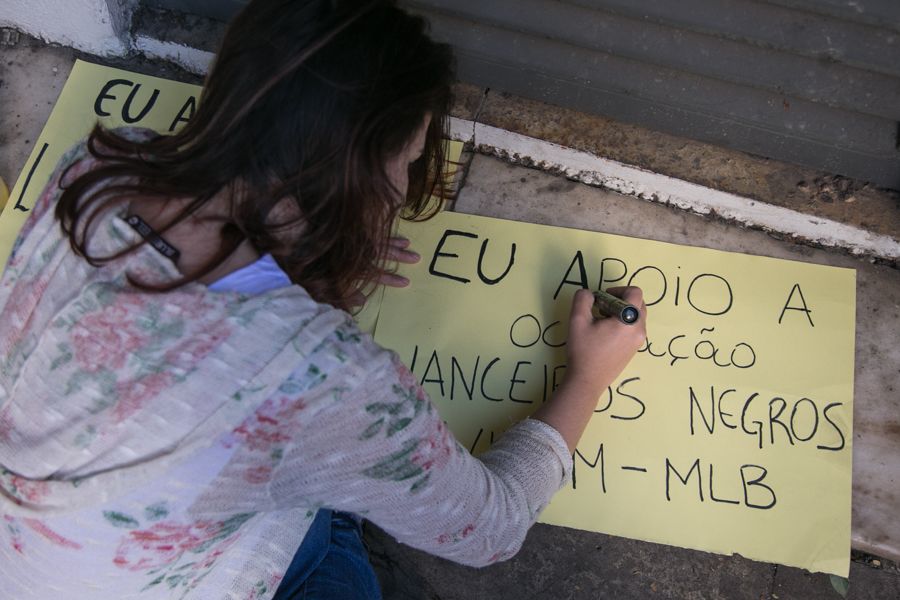 EU A
L
EU APOIO A
OCUPAÇÃO
LANCEIROS NEGROS
MLB